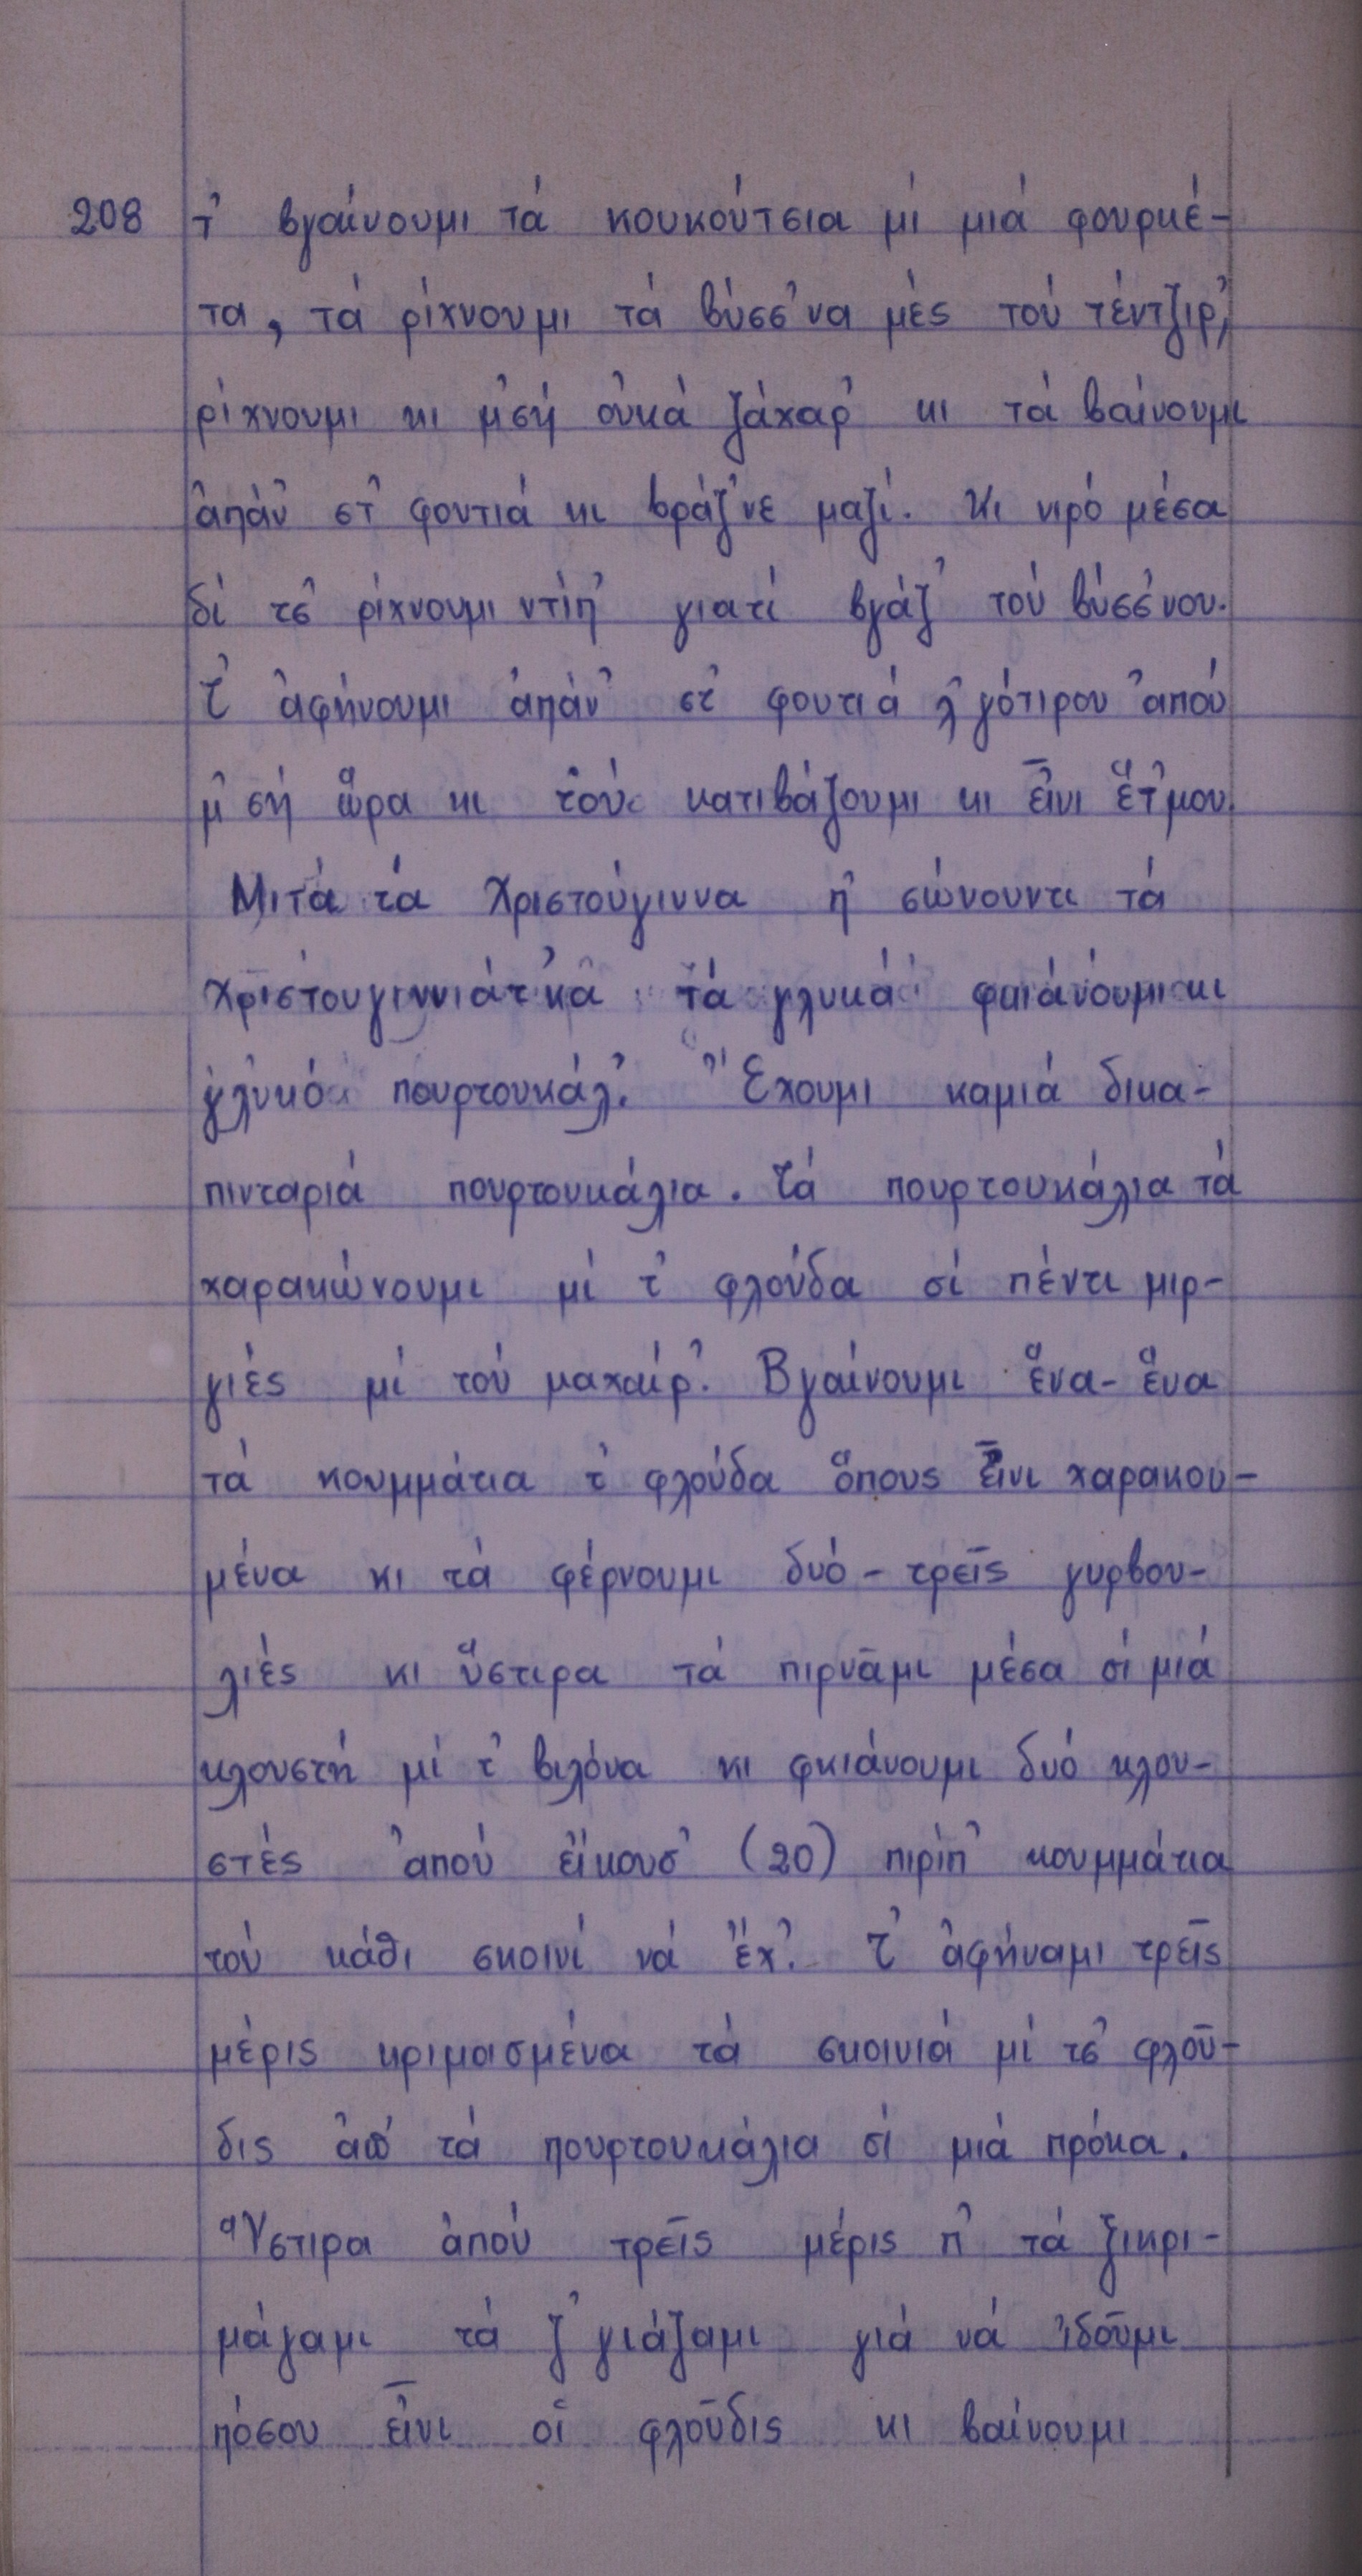 208 τ’ βγαίνουμι τά κουκούτσια μί μιά φουρκέ-
τα, τά ρίχνουμι τά βύσσ’να μές τού τέντζιρ’,
ρίχνουμι κι μ’σή ὀκά ζάχαρ’ κι τά βαίνουμι
ἀπάν’ στ’ φουτιά κι βράζ’νε μαζί. Κι νιρό μέσα
δί τσ’ ρίχνουμι ντίπ’ γιατί βγάζ’ τού βύσσ’νου.
Τ’ ἀφήνουμι ἀπάν’ στ’ φουτιά λ’γότιρου ἀπού
μ’σή ὥρα κι τού κατιβάζουμι κι εἶνι ἕτ’μου.
Μιτά τά Χριστούγιννα π’ σώνουντι τά
Χριστουγιννιάτ’κα τά γλυκά φκιάνουμι κι
γλυκό πουρτουκάλ’. Ἔχουμι καμιά δικα-
πινταριά πουρτουκάλια. Τά πουρτουκάλια τά
χαρακώνουμι μί τ’ φλούδα σί πέντι μιρ-
γιές μί τού μαχαίρ’. Βγαίνουμι ἕνα-ἕνα
τά κουμμάτια τ’ φλούδα ὅπους εἶνι χαρακου-
μένα κι τά φέρνουμι δυό-τρεῖς γυρβου-
λιές κι ὕστιρα τά πιρνᾶμι μέσα σί μιά
κλουστή μί τ’ βιλόνα κι φκιάνουμι δυό κλου-
στές ἀπού εἴκουσ’ (20) πιρίπ’ κουμμάτια
τού κάθι σκοινί νά ἔχ’. Τ’ ἀφήναμι τρεῖς
μέρις κριμασμένα τά σκοινιά μί τσ’ φλοῦ-
δις ἀπ’ τά πουρτουκάλια σί μιά πρόκα.
Ὕστιρα ἀπού τρεῖς μέρις π’ τά ξικρι-
μάγαμι τά ζ’γιάζαμι γιά νά ἰδοῦμι
πόσου εἶνι οἱ φλοῦδις κι βαίνουμι